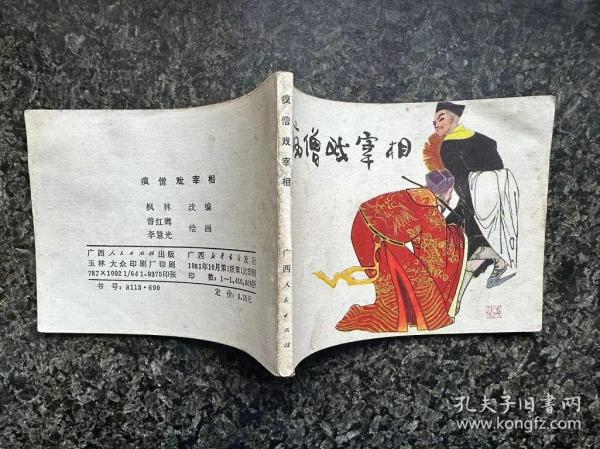 疯僧戏宰相
枫林 改编
曾红鹰
李慧光 绘画
广西人民出版社出版 广西新华书店发行
玉林大众印刷厂印刷 1981年10月第1版第1次印刷
787×1092 1/64 1.9375印张
书号：8113·690 定价：0.15元
疯僧戏宰相
广西人民出版社
僧戏宰相
孔夫子旧书网
www.kongfz.com